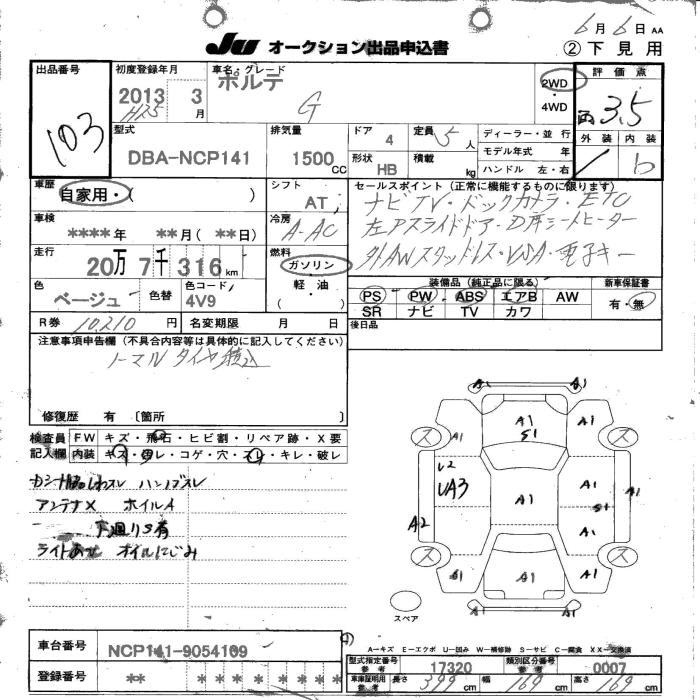 6月6日 AA
JU オークション出品申込書
②下見用
出品番号
103
初度登録年月
2013 3
H25 月
車名・グレード
ポルテ
G
2WD
・
4WD
評価点
3.5
外装 内装
b
型式
DBA-NCP141
排気量
1500
CC
ドア 4
定員 5人
形状 HB
積載 kg
ディーラー・並行
モデル年式 年
ハンドル 左・右
車歴
自家用・( )
シフト
AT
車検
****年 **月(**日)
冷房
A-AC
走行
20万7千316km
燃料
ガソリン
軽油
・
( )
色
ベージュ
色替
色コード
4V9
R券 10,210円
名変期限 月 日
セールスポイント(正常に機能するものに限ります)
ナビTV・バックカメラ・ETC
左Pスライドドア・D席シートヒーター
社外AWスタッドレス・VSA・電子キー
装備品(純正品に限る)
新車保証書
PS PW ABS エアB AW
SR ナビ TV カワ
有・無
後日品
注意事項申告欄(不具合内容等は具体的に記入してください)
ノーマルタイヤ積込
修復歴 有 〔箇所 〕
検査員 FW キズ・飛石・ヒビ割・リペア跡・X要
記入欄 内装 キズ・ヨゴレ・コゲ・穴・スレ・キレ・破レ
ハンドルスレ
アンテナX ホイルA
下廻りS有
ライトあせ オイルにじみ
A1
A1
S1
ス
A1
A1
ス
U2
UA3
A1
A1
S1
A1
A2
A1
ス
S1
A1
A1
ス
A1
A1
スペア
A-キズ E-エクボ U-凹み W-補修跡 S-サビ C-腐食 XX-交換済
車台番号 NCP141-9054109
登録番号 ** * * * * * * *
型式指定番号
参考
17320
類別区分番号
参考
0007
車庫証明用
参考
長さ 399cm 幅 169cm 高さ 169cm